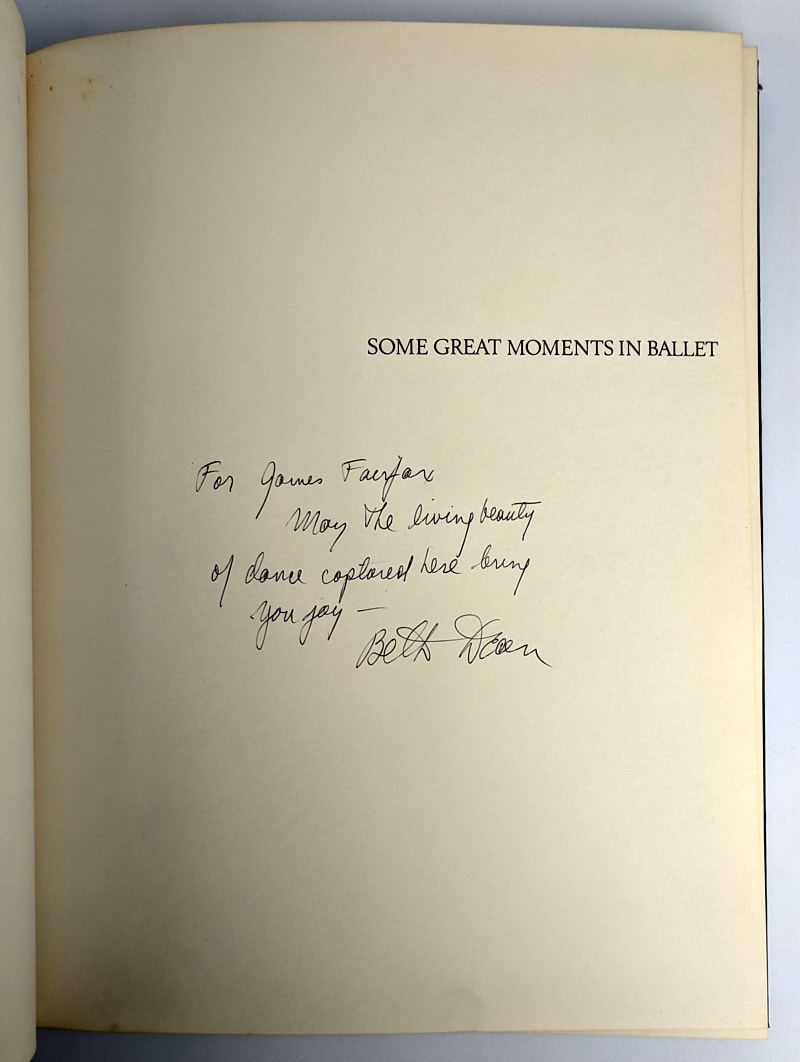 SOME GREAT MOMENTS IN BALLET
For James Fairfax
May the living beauty
of dance captured here bring
you joy —
Beth Dean